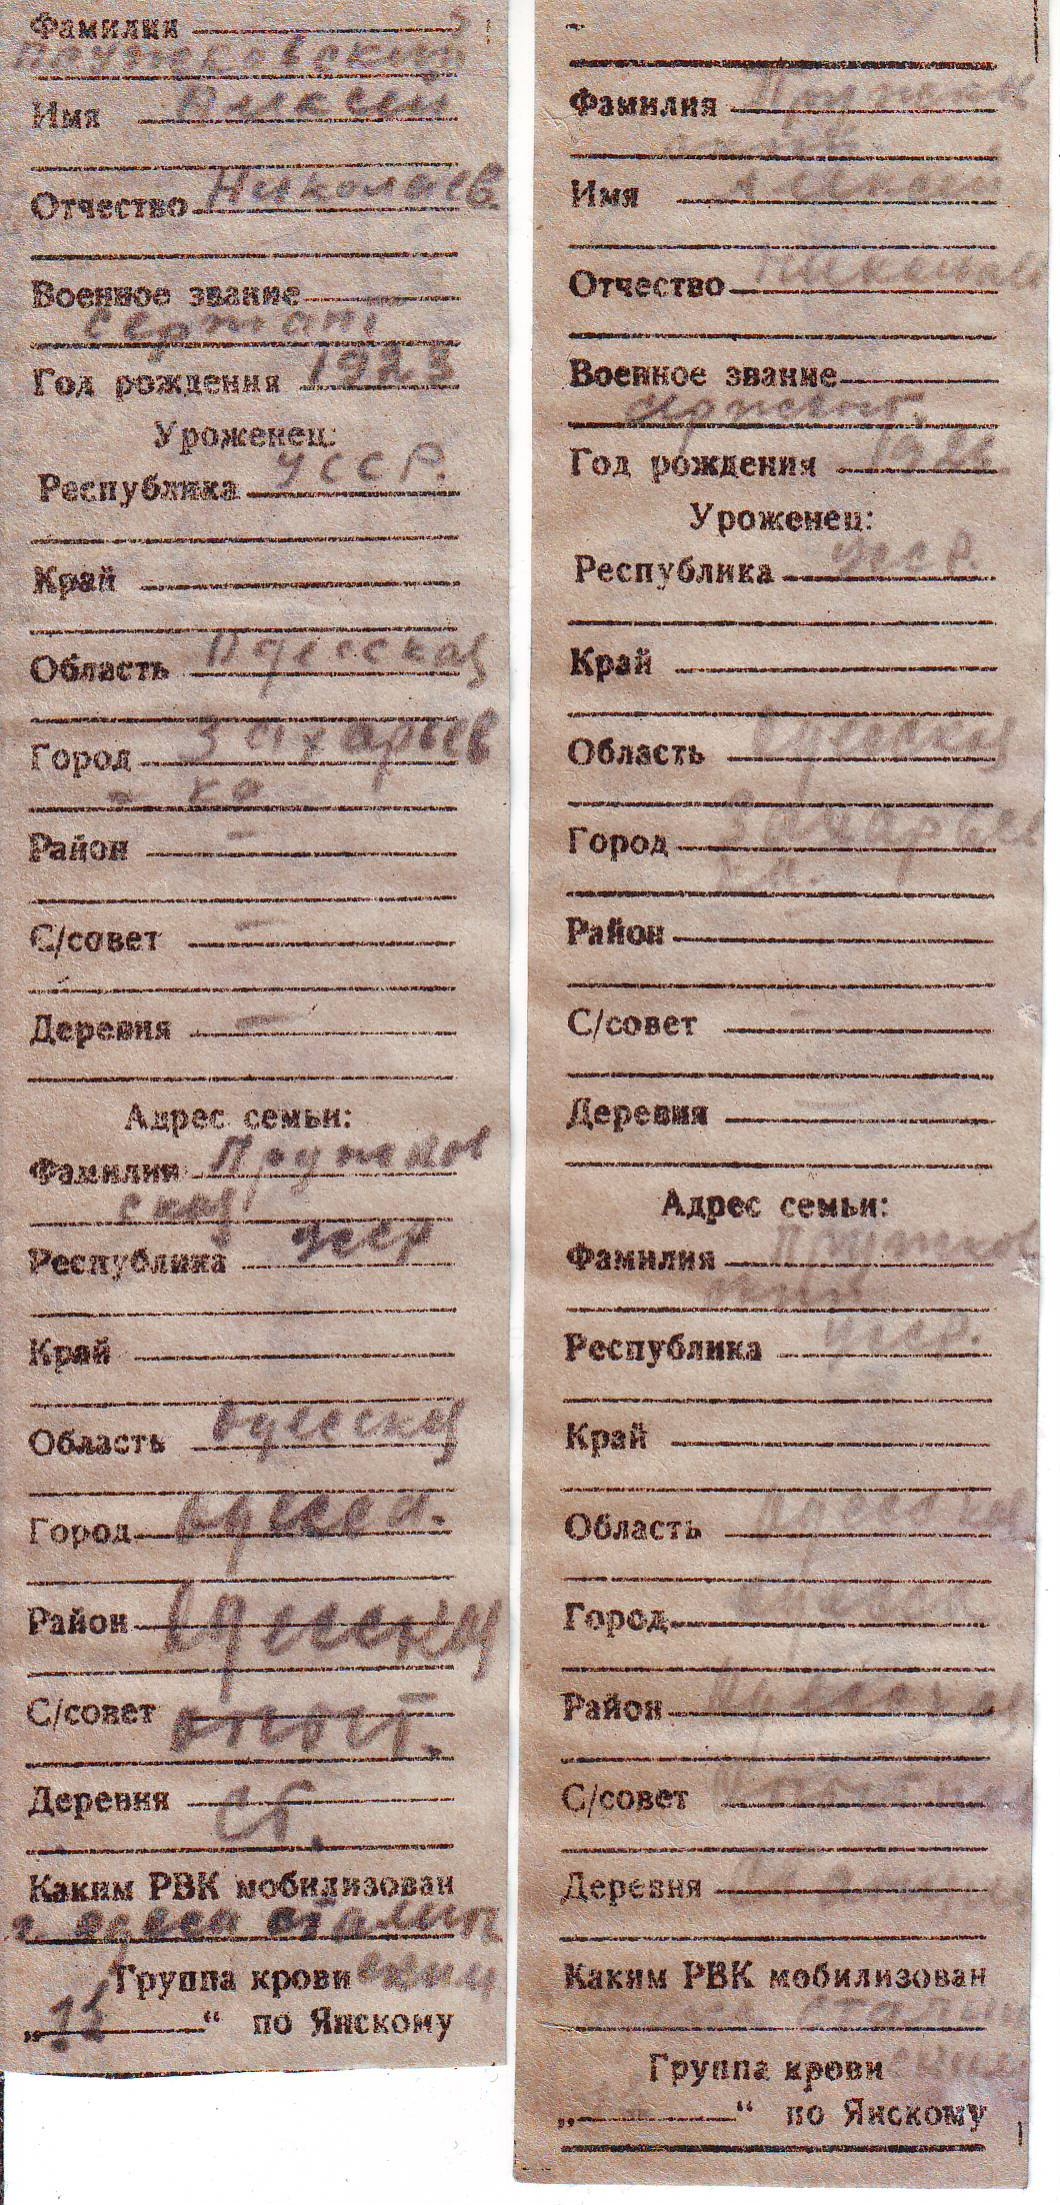 Фамилия
Пружковский
Имя Алексей
Отчество Николаев
Военное звание
сержант
Год рождения 1923
Уроженец:
Республика УССР.
Край
Область Одесская
Город Захарьев
- ка
Район -
С/совет -
Деревня -
Адрес семьи:
Фамилии Пружков
ская
Республика УССР
Край
Область Одесская
Город Одесса.
Район Одесский
С/совет
Деревня ст.
Каким РВК мобилизован
г. Одеса Сталин
Группа крови ским
„ “ по Янскому
Фамилия
Имя Алексей
Отчество Николаев
Военное звание
сержант.
Год рождения
Уроженец:
Республика УССР.
Край
Область Одесская
Город Захарьев
Район
С/совет
Деревня
Адрес семьи:
Фамилия Пружков
Республика УССР.
Край
Область Одесская
Город Одесса
Район Одесская
С/совет
Деревня
Каким РВК мобилизован
Сталин
Группа крови ским
„ “ по Янскому